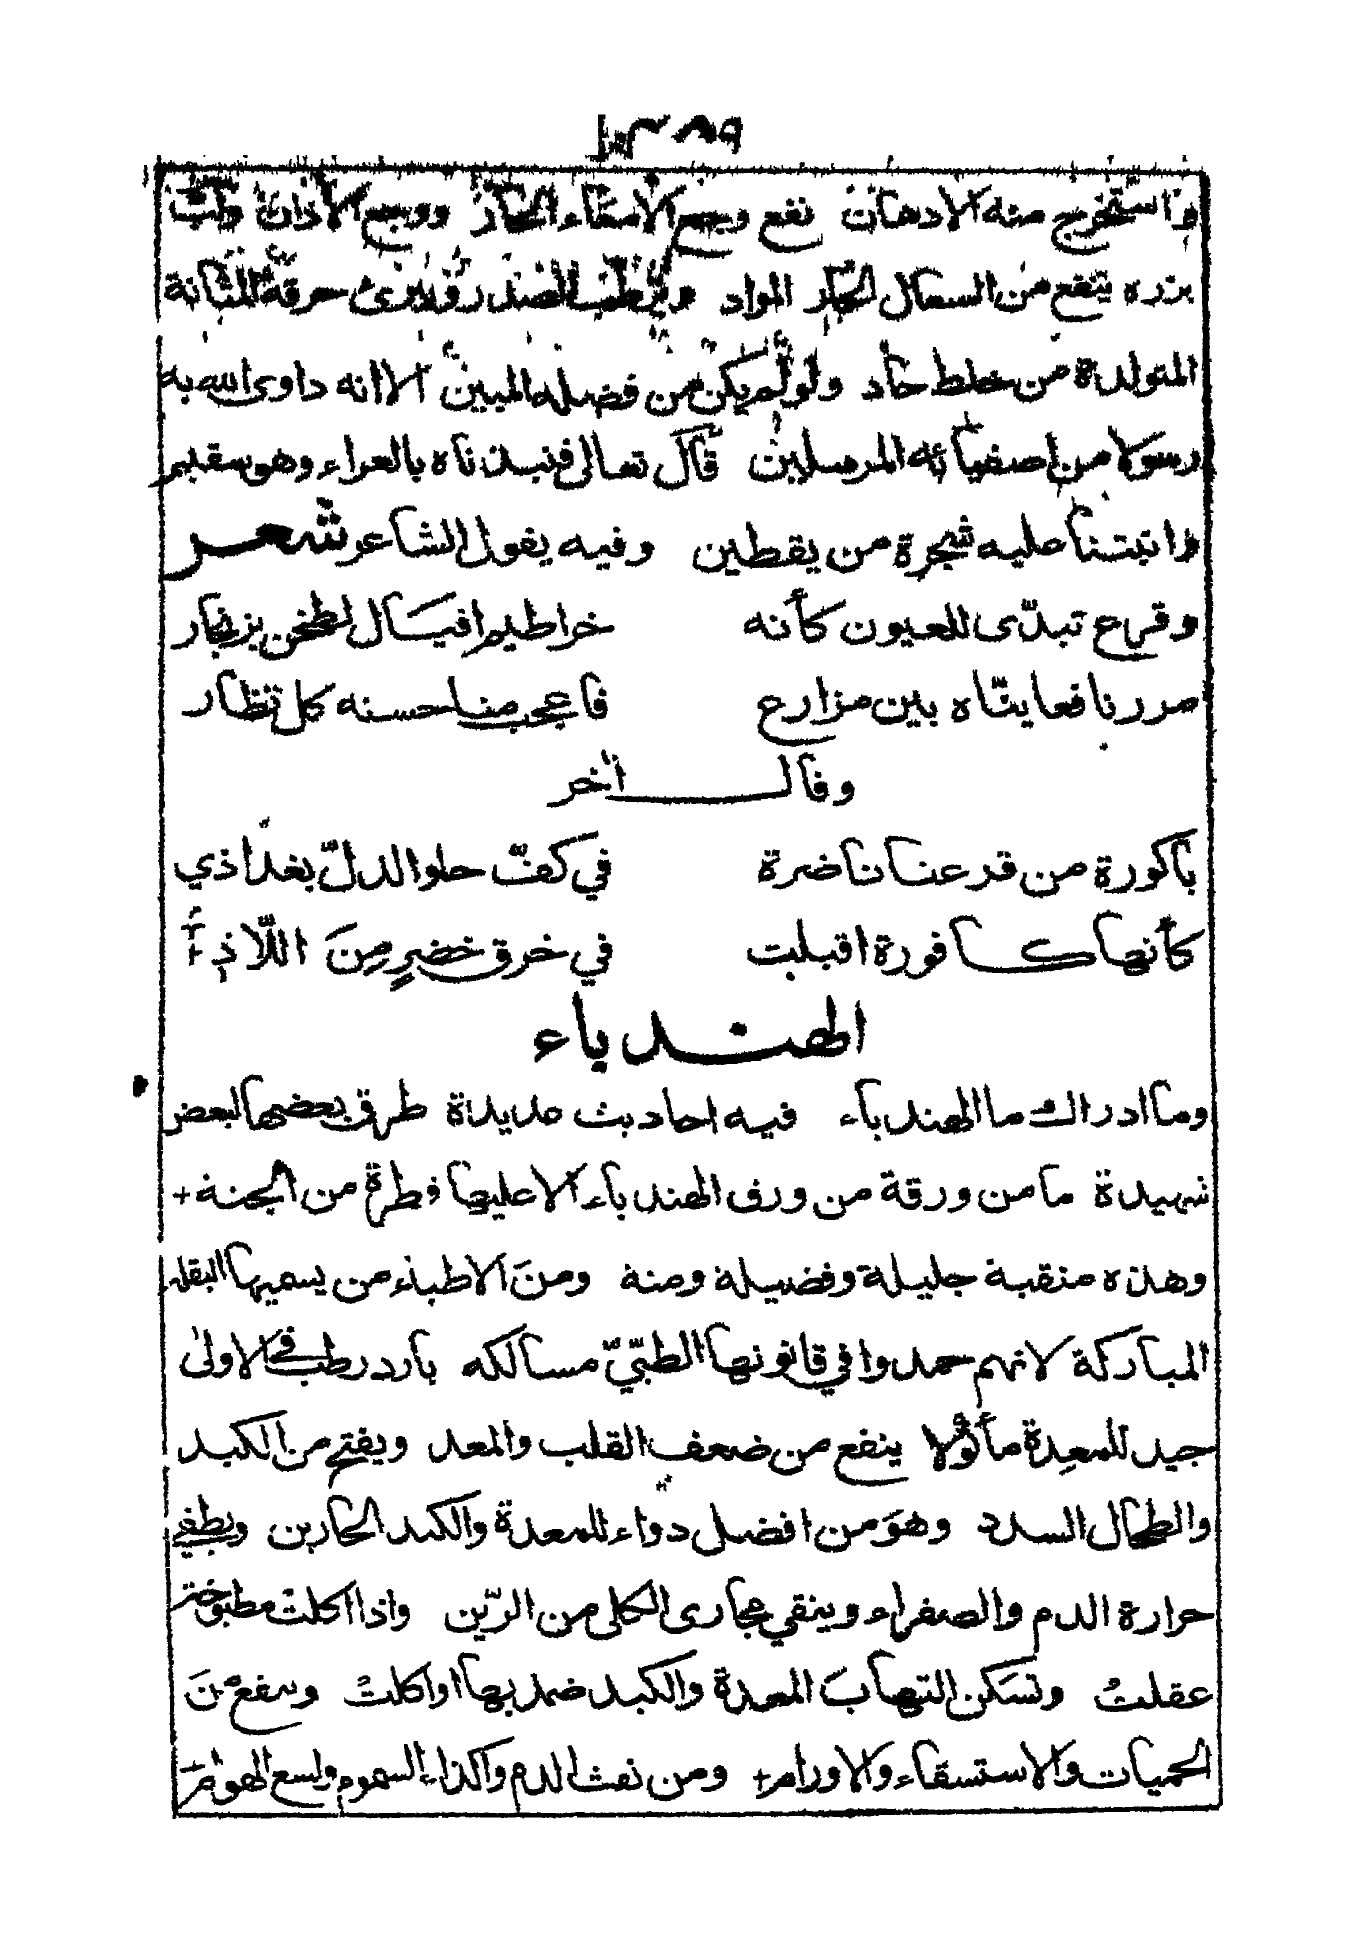 واستخرج منه الادهان نفع وجع الامعاء الحار ووجع الأذان ولب
بزره ينفع من السعال الحار المواد ويرطب الصدر ويبرئ حرقة المثانة
المتولدة من خلط حاد ولو لم يكن من فضله المبين الا انه داوى الله به
رسولا من اصفيائه المرسلين قال تعالى فنبذناه بالعراء وهو سقيم
وانبتنا عليه شجرة من يقطين وفيه يقول الشاعر شعر
وقرع تبدّى للعيون كأنه خراطيم افيال لطخن بزنجار
مررنا فعاينّاه بين مزارع فاعجب منا حسنه كل نظار
وقال آخر
باكورة من قرعنا ناضرة في كفّ حلو الدلّ بغداذي
كأنها كافورة اقبلت في خرق خضرٍ منَ اللّاذ
الهندباء
وما ادراك ما الهندباء فيه احاديث عديدة طرق بعضها لبعض
شهيدة ما من ورقة من ورق الهندباء الا عليها قطرة من الجنة
وهذه منقبة جليلة وفضيلة ومنة ومنَ الاطباء من يسميها البقلة
المباركة لانهم حمدوا في قانونها الطبّيّ مسالكه بارد رطب في الاولى
جيد للمعدة مأكولا ينفع من ضعف القلب والمعد ويفتح من الكبد
والطحال السدد وهوَ من افضل دواء للمعدة والكبد الحارين ويطفي
حرارة الدم والصفراء وينقي مجارى الكلى من الرّين واذا اكلت مطبوخة
عقلتْ وتسكن التهابَ المعدة والكبد ضمد بها او اكلتْ وينفع منَ
الحميات والاستسقاء والاورام ومن نفث الدم واكذاء السموم ولسع الهوام